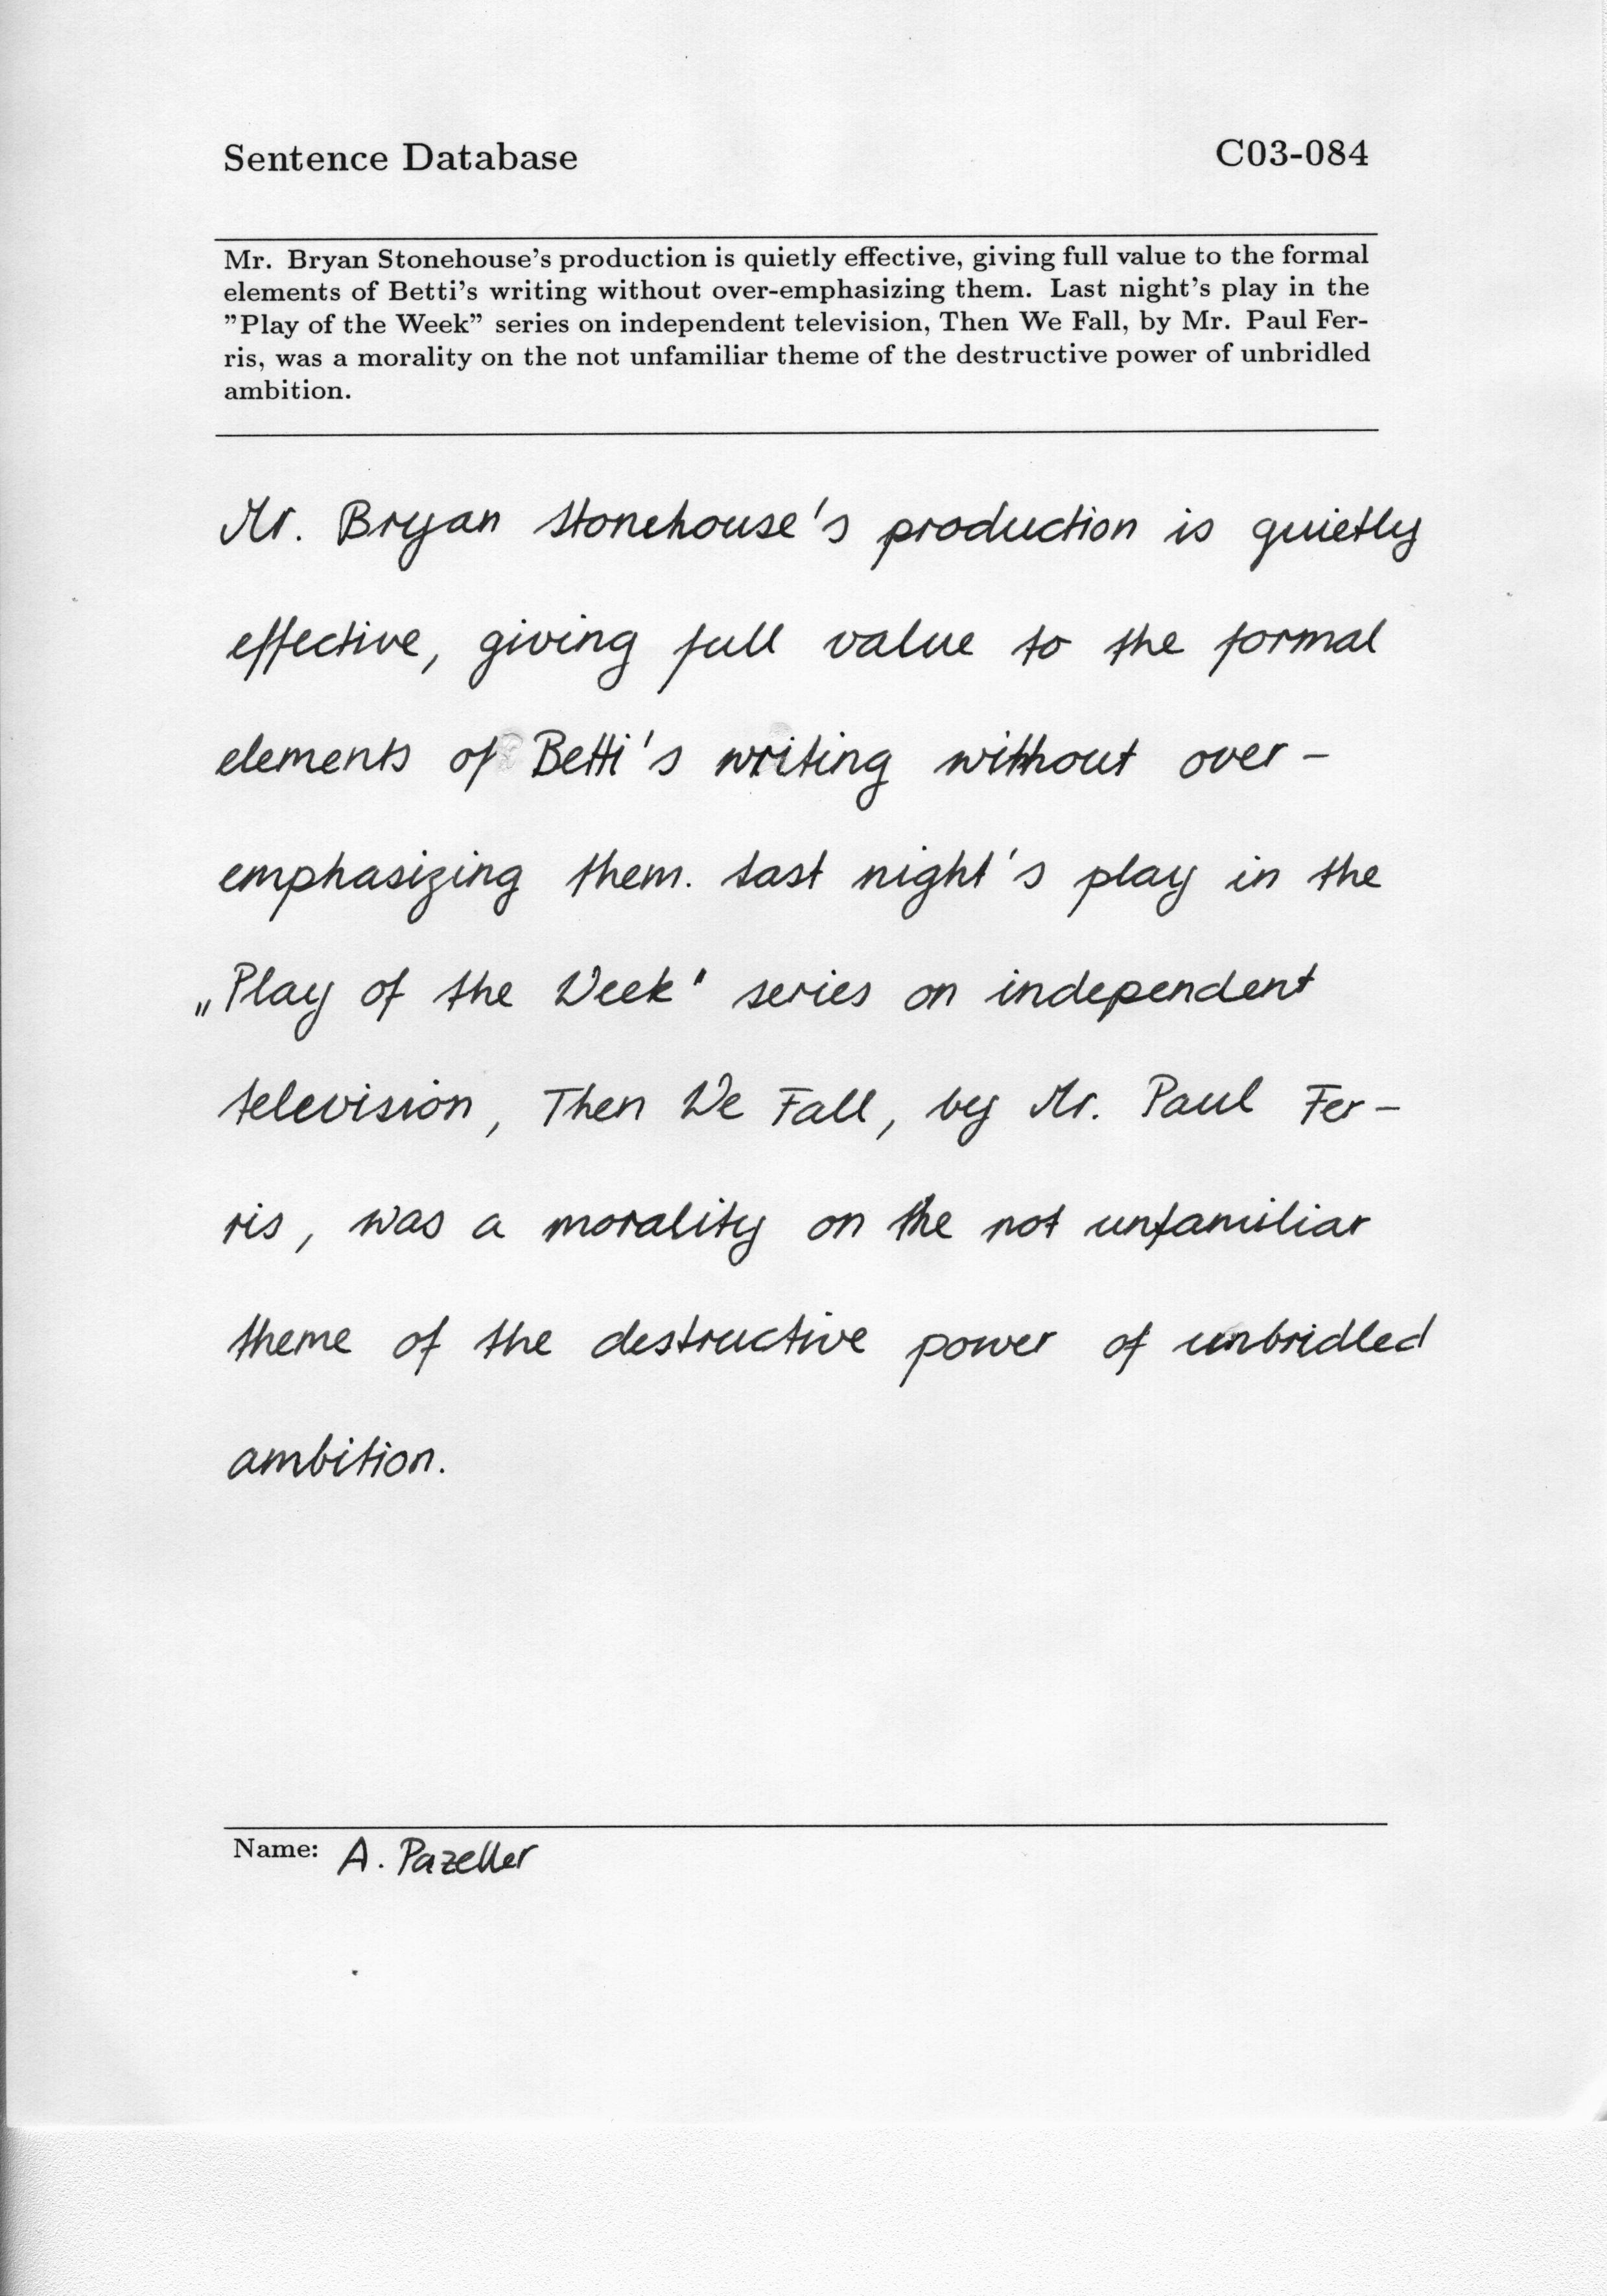 Sentence Database C03-084
Mr. Bryan Stonehouse's production is quietly effective, giving full value to the formal
elements of Betti's writing without over-emphasizing them. Last night's play in the
”Play of the Week” series on independent television, Then We Fall, by Mr. Paul Fer-
ris, was a morality on the not unfamiliar theme of the destructive power of unbridled
ambition.
Mr. Bryan Stonehouse's production is quietly
effective, giving full value to the formal
elements of Betti's writing without over-
emphasizing them. Last night's play in the
„Play of the Week" series on independent
television, Then We Fall, by Mr. Paul Fer-
ris, was a morality on the not unfamiliar
theme of the destructive power of unbridled
ambition.
Name: A. Pazeller